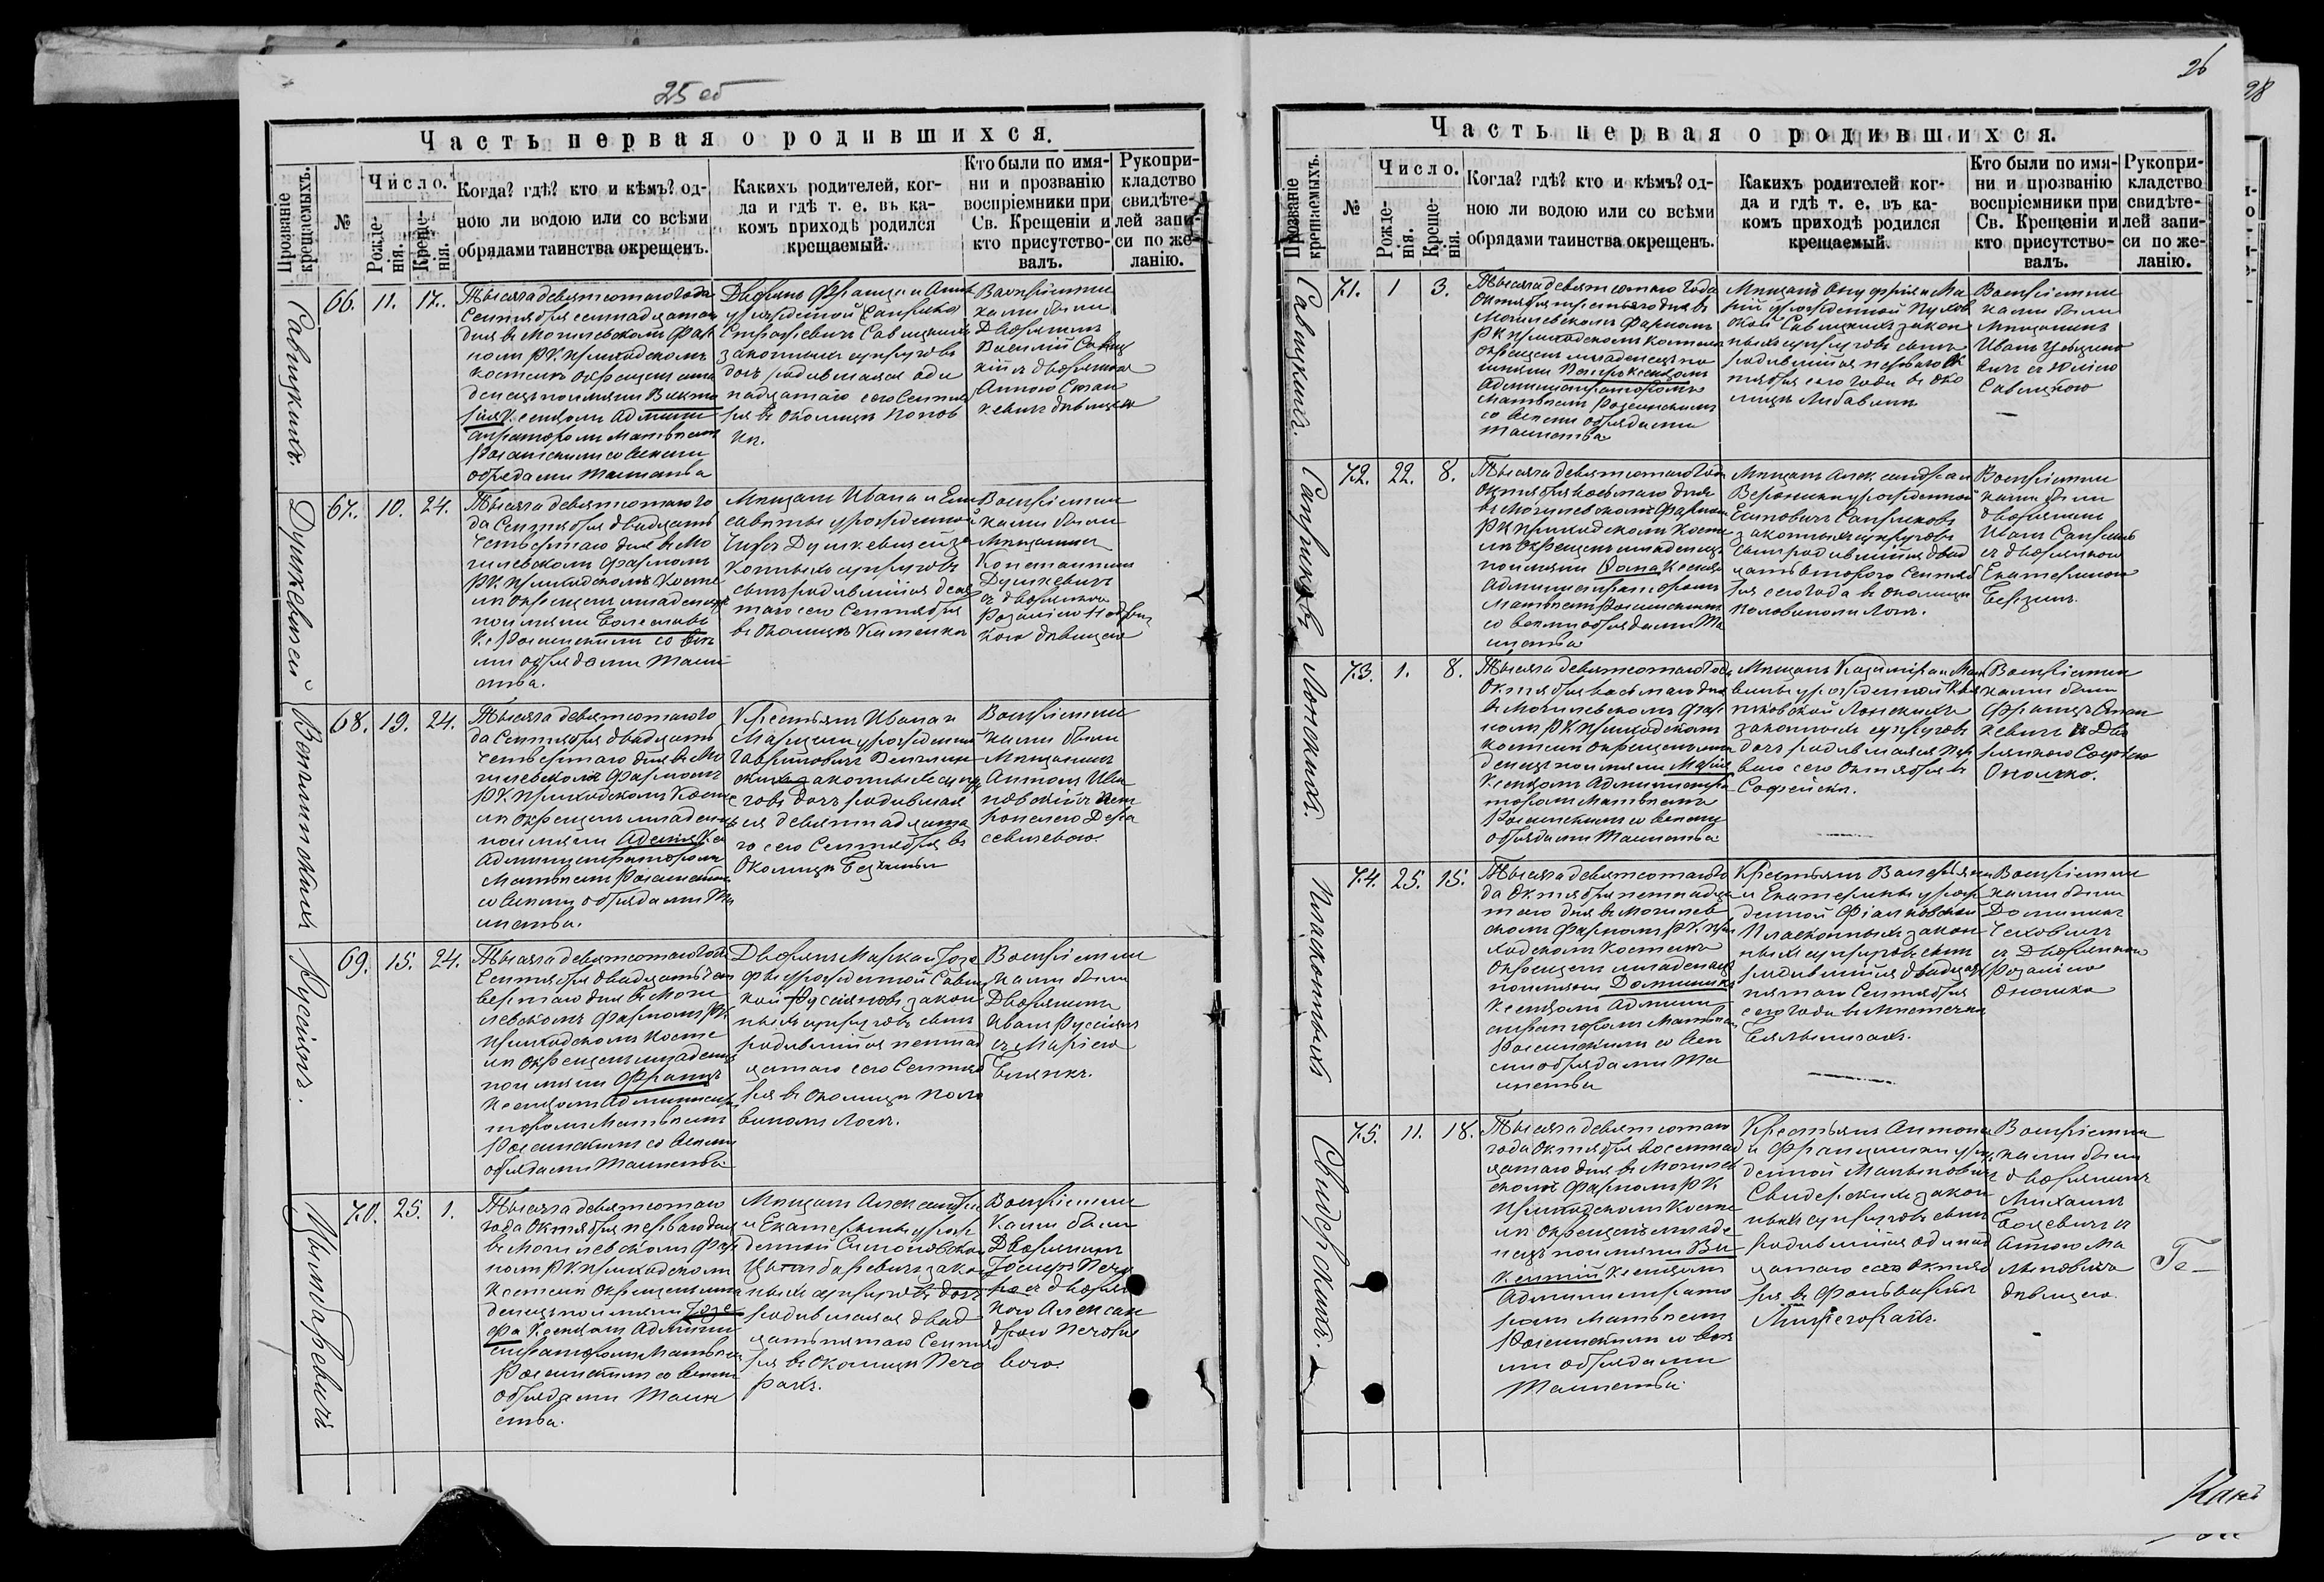 25 об
Часть первая о родившихся.
Прозваніе крещаемыхъ.
№
Число.
Рожде-
нія.
Креще-
нія.
Когда? гдѣ? кто и кѣмъ? од-
ною ли водою или со всѣми
обрядами таинства окрещенъ.
Какихъ родителей, ког-
да и гдѣ т. е. въ ка-
комъ приходѣ родился
крещаемый.
Кто были по имя-
ни и прозванію
воспріемники при
Св. Крещеніи и
кто присутство-
валъ.
Рукопри-
кладство
свидѣте-
лей запи-
си по же-
ланію.
Савицкихъ.
66. 11. 17.
Тысяча девятсотаго года
Сентября семнадцатаго
дня въ Могилевскомъ Фар
номъ РК приходскомъ
костелѣ окрещенъ мла
денецъ по имяни Викто
рія Ксендзомъ Админи
страторомъ Матвѣемъ
со всѣми
обрядами таинства
Дворянъ Франца и Анны
урожденной
Савицкихъ
законныхъ супруговъ
дочь родившаяся оди
надцатаго сего Сентяб
ря въ околицѣ Попов
кѣ.
Воспріемни
ками были
Дворянинъ
Василій Савиц
кій съ дворянкою
Анною Стан
кевичъ дѣвицею
Душкевичей
67. 10. 24.
Тысяча девятсотаго го
да Сентября двадцать
четвертаго дня въ Мо
гилевскомъ Фарномъ
РК приходскомъ косте
лѣ окрещенъ младенецъ
по имяни Болеславъ
со всѣ
ми обрядами таин
ства.
Мѣщанъ Ивана и Ели
саветы урожденной
Душкевичей за
конныхъ супруговъ
сынъ родившійся деся
таго сего Сентября
въ околицѣ Каменка
Воспріемни
ками были
Мѣщанинъ
Константинъ
Душкевичъ
съ дворянкою
Розаліею
дѣвицею
68. 19. 24.
Тысяча девятсотаго го
да Сентября двадцать
четвертаго дня въ Мо
гилевскомъ Фарномъ
РК приходскомъ Косте
лѣ окрещенъ младенецъ
по имяни Аделія Кс
Администраторомъ
Матвѣемъ
со всѣми обрядами Та
инства.
Крестьянъ Ивана и
урожденной
Гавриловичъ
законныхъ супру
говъ дочь родившая
ся девятнадцата
го сего Сентября въ
Околицѣ
Воспріемни
ками были
Мѣщанинъ
Антонъ
Русіянъ.
69. 15. 24.
Тысяча девятсотаго года
Сентября двадцать чет
вертаго дня въ Моги
левскомъ Фарномъ РК
приходскомъ косте
лѣ окрещенъ младенецъ
по имяни Францъ
Ксендзомъ Администра
торомъ Матвѣемъ
со всѣми
обрядами Таинства
Дворянъ Марка и Іозе
фы урожденной Савиц
кой Русіяновъ закон
ныхъ супруговъ сынъ
родившійся пятнад
цатаго сего Сентяб
ря въ околицѣ Поло
виномъ Логѣ.
Воспріемни
ками были
Дворянинъ
Иванъ Русіянъ
съ Маріею
Цындаревичъ
70. 25. 1.
Тысяча девятсотаго
года Октября перваго дня
въ Могилевскомъ Фар
номъ РК приходскомъ
Костелѣ окрещенъ мла
денецъ по имяни Іозе
фа Ксендзомъ Админи
страторомъ Матвѣемъ
со всѣми
обрядами Таин
ства.
Мѣщанъ Александра
и Екатерины урож
денной
Цындаревичъ закон
ныхъ супруговъ дочь
родившаяся двад
цать пятаго Сентяб
ря въ околицѣ Печо
рахъ.
Воспріемни
ками были
Дворянинъ
Іосифъ
съ дворян
кою Алексан
дрою
26
28
Часть первая о родившихся.
Прозваніе крещаемыхъ.
№
Число.
Рожде-
нія.
Креще-
нія.
Когда? гдѣ? кто и кѣмъ? од-
ною ли водою или со всѣми
обрядами таинства окрещенъ.
Какихъ родителей ког-
да и гдѣ т. е. въ ка-
комъ приходѣ родился
крещаемый.
Кто были по имя-
ни и прозванію
воспріемники при
Св. Крещеніи и
кто присутство-
валъ.
Рукопри-
кладство
свидѣте-
лей запи-
си по же-
ланію.
Савицкихъ.
71. 1 3.
Тысяча девятсотаго года
Октября третьяго дня въ
Могилевскомъ Фарномъ
РК приходскомъ костелѣ
окрещенъ младенецъ по
имяни Петръ Ксендзомъ
Администраторомъ
Матвѣемъ
со всѣми обрядами
таинства
Мѣщанъ Онуфрія и Ма
ріи урожденной
Савицкихъ закон
ныхъ супруговъ сынъ
родившійся перваго Ок
тября сего года въ око
лицѣ
Воспріемни
ками были
Мѣщанинъ
Иванъ
съ Юліею
Савицкою
Саприковъ
72. 22. 8.
Тысяча девятсотаго года
Октября восьмаго дня
въ Могилевскомъ Фарномъ
РК приходскомъ Косте
лѣ окрещенъ младенецъ
по имяни Ѳома Ксендз
Администраторомъ
Матвѣемъ
со всѣми обрядами Та
инства
Мѣщанъ Александра и
Вероники урожденной
Саприковъ
законныхъ супруговъ
сынъ родившійся двад
цать втораго Сентяб
ря сего года въ околицѣ
Половиномъ Логѣ.
Воспріемни
ками были
дворянинъ
Иванъ
съ дворянкою
Екатериною
Лонскихъ.
73. 1. 8.
Тысяча девятсотаго года
Октября восьмаго дня
въ Могилевскомъ Фар
номъ РК приходскомъ
костелѣ окрещенъ мла
денецъ по имяни Марія
Ксендзомъ Администра
торомъ Матвѣемъ
со всѣми
обрядами таинства
Мѣщанъ Казиміра и
урожденной
Лонскихъ
законныхъ супруговъ
дочь родившаяся пер
ваго сего Октября въ
Софейскѣ.
Воспріемни
ками были
Францъ Стан
кевичъ съ Дво
рянкою Софіею
Оношко.
74. 25. 15.
Тысяча девятсотаго го
да Октября пятнадца
таго дня въ Могилев
скомъ Фарномъ РК при
ходскомъ Костелѣ
окрещенъ младенецъ
по имяни Доминикъ
Ксендзомъ Админи
страторомъ Матвѣемъ
со всѣ
ми обрядами Та
инства
Крестьянъ Валерьяна
и Екатерины урож
денной Фіалковской
закон
ныхъ супруговъ сынъ
родившійся двадцать
пятаго Сентября
сего года въ мѣстечкѣ
Воспріемни
ками были
Доминикъ
съ Дворянкою
Розаліею
Оношко
Свидерскихъ.
75. 11. 18.
Тысяча девятсотаго
года Октября восемнад
цатаго дня въ Могилев
скомъ Фарномъ РК
приходскомъ Косте
лѣ окрещенъ младе
нецъ по имяни Ви
кентій Ксендзомъ
Администрато
ромъ Матвѣемъ
со всѣ
ми обрядами
Таинства.
Крестьянъ Антона
и Францишки урож
денной
Свидерскихъ закон
ныхъ супруговъ сынъ
родившійся одинад
цатаго сего Октяб
ря въ Фольваркѣ
Воспріемни
ками были
дворянинъ
Михаилъ
и
Анною
дѣвицею